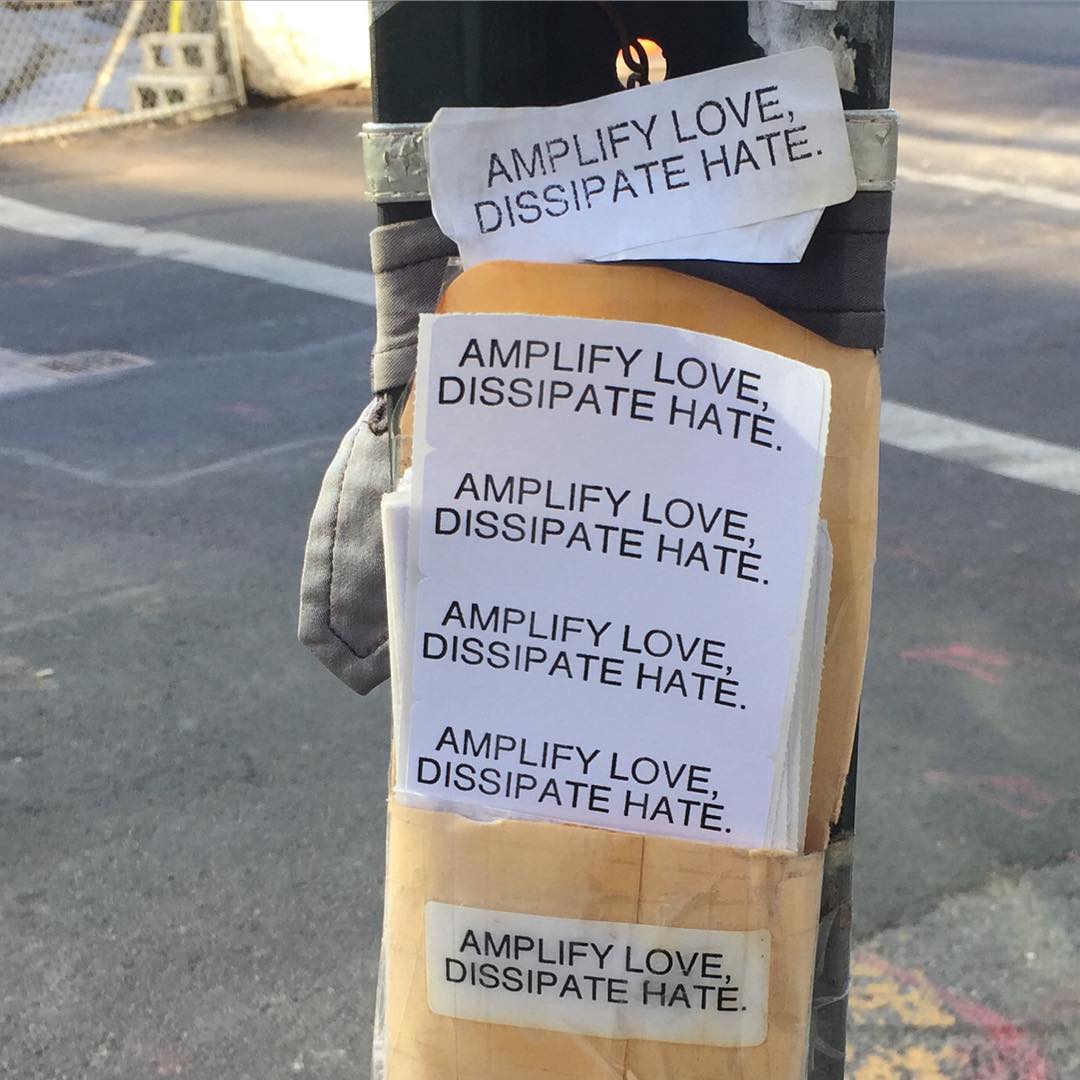 AMPLIFY LOVE,
DISSIPATE HATE.
AMPLIFY LOVE,
DISSIPATE HATE.
AMPLIFY LOVE,
DISSIPATE HATE.
AMPLIFY LOVE,
DISSIPATE HATE.
AMPLIFY LOVE,
DISSIPATE HATE.
AMPLIFY LOVE,
DISSIPATE HATE.